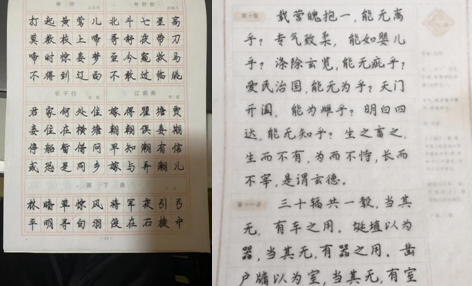 打起黄莺儿
莫教枝上啼
啼时惊妾梦
不得到辽西
北斗七星高
哥舒夜带刀
至今窥牧马
不敢过临洮
长干行
君家何处住
妾住在横塘
停船暂借问
或恐是同乡
江南曲
嫁得瞿塘贾
朝朝误妾期
早知潮有信
嫁与弄潮儿
塞下曲
林暗草惊风
将军夜引弓
平明寻白羽
没在石棱中
载营魄抱一，能无离
乎？专气致柔，能如婴儿
乎？涤除玄览，能无疵乎？
爱民治国，能无为乎？天门
开阖，能为雌乎？明白四
达，能无知乎？生之畜之，
生而不有，为而不恃，长而
不宰，是谓玄德。
三十辐共一毂，当其
无，有车之用。埏埴以为
器，当其无，有器之用。凿
户牖以为室，当其无，有室